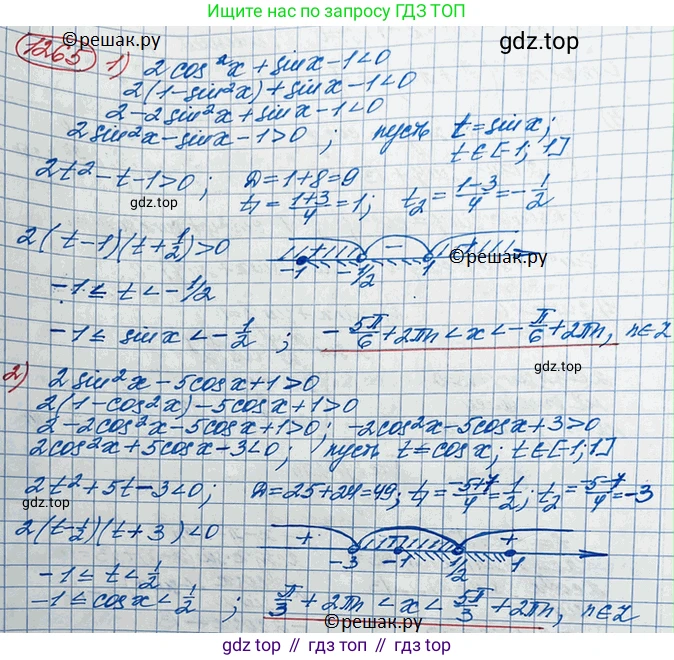 Больше решений по запросу ГДЗ ТОП
©решак.ру
гдз top
1265 1) 2cos²x + sinx - 1 < 0
2(1 - sin²x) + sinx - 1 < 0
2 - 2sin²x + sinx - 1 < 0
2sin²x - sinx - 1 > 0 ; пусть t = sinx;
t ∈ [-1; 1]
2t² - t - 1 > 0; D = 1 + 8 = 9
гдз top
t₁ = (1+3)/4 = 1; t₂ = (1-3)/4 = -1/2
2(t - 1)(t + 1/2) > 0 + - + ©решак.ру
-1 -1/2 1
-1 ≤ t < -1/2
-1 ≤ sinx < -1/2 ; -5π/6 + 2πn < x < -π/6 + 2πn, n ∈ Z
2) 2sin²x - 5cosx + 1 > 0
2(1 - cos²x) - 5cosx + 1 > 0
2 - 2cos²x - 5cosx + 1 > 0; -2cos²x - 5cosx + 3 > 0
2cos²x + 5cosx - 3 < 0; пусть t = cosx; t ∈ [-1; 1]
2t² + 5t - 3 < 0; D = 25 + 24 = 49; t₁ = (-5+7)/4 = 1/2; t₂ = (-5-7)/4 = -3
гдз top
2(t - 1/2)(t + 3) < 0 + +
-3 -1 1/2 1
-1 ≤ t < 1/2
-1 ≤ cosx < 1/2 ; π/3 + 2πn < x < 5π/3 + 2πn, n ∈ Z
©решак.ру
гдз top // гдз топ // gdz top